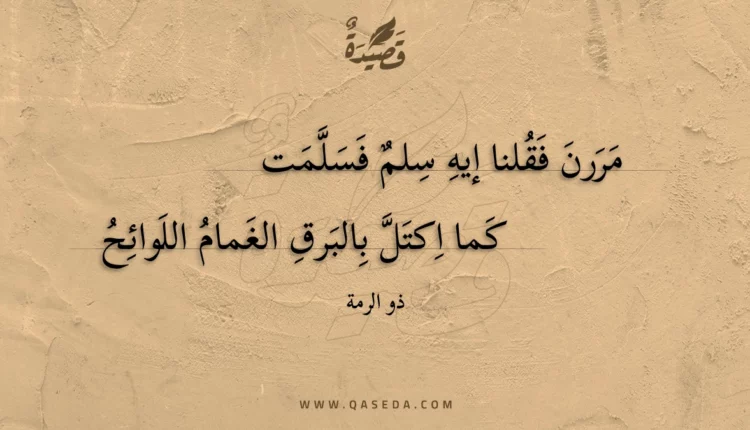 قَصِيْدَةٌ
مَرَرنَ فَقُلنا إيهِ سِلمٌ فَسَلَّمَت
كَما اِكتَلَّ بِالبَرقِ الغَمامُ اللَوائِحُ
ذو الرمة
WWW.QASEDA.COM